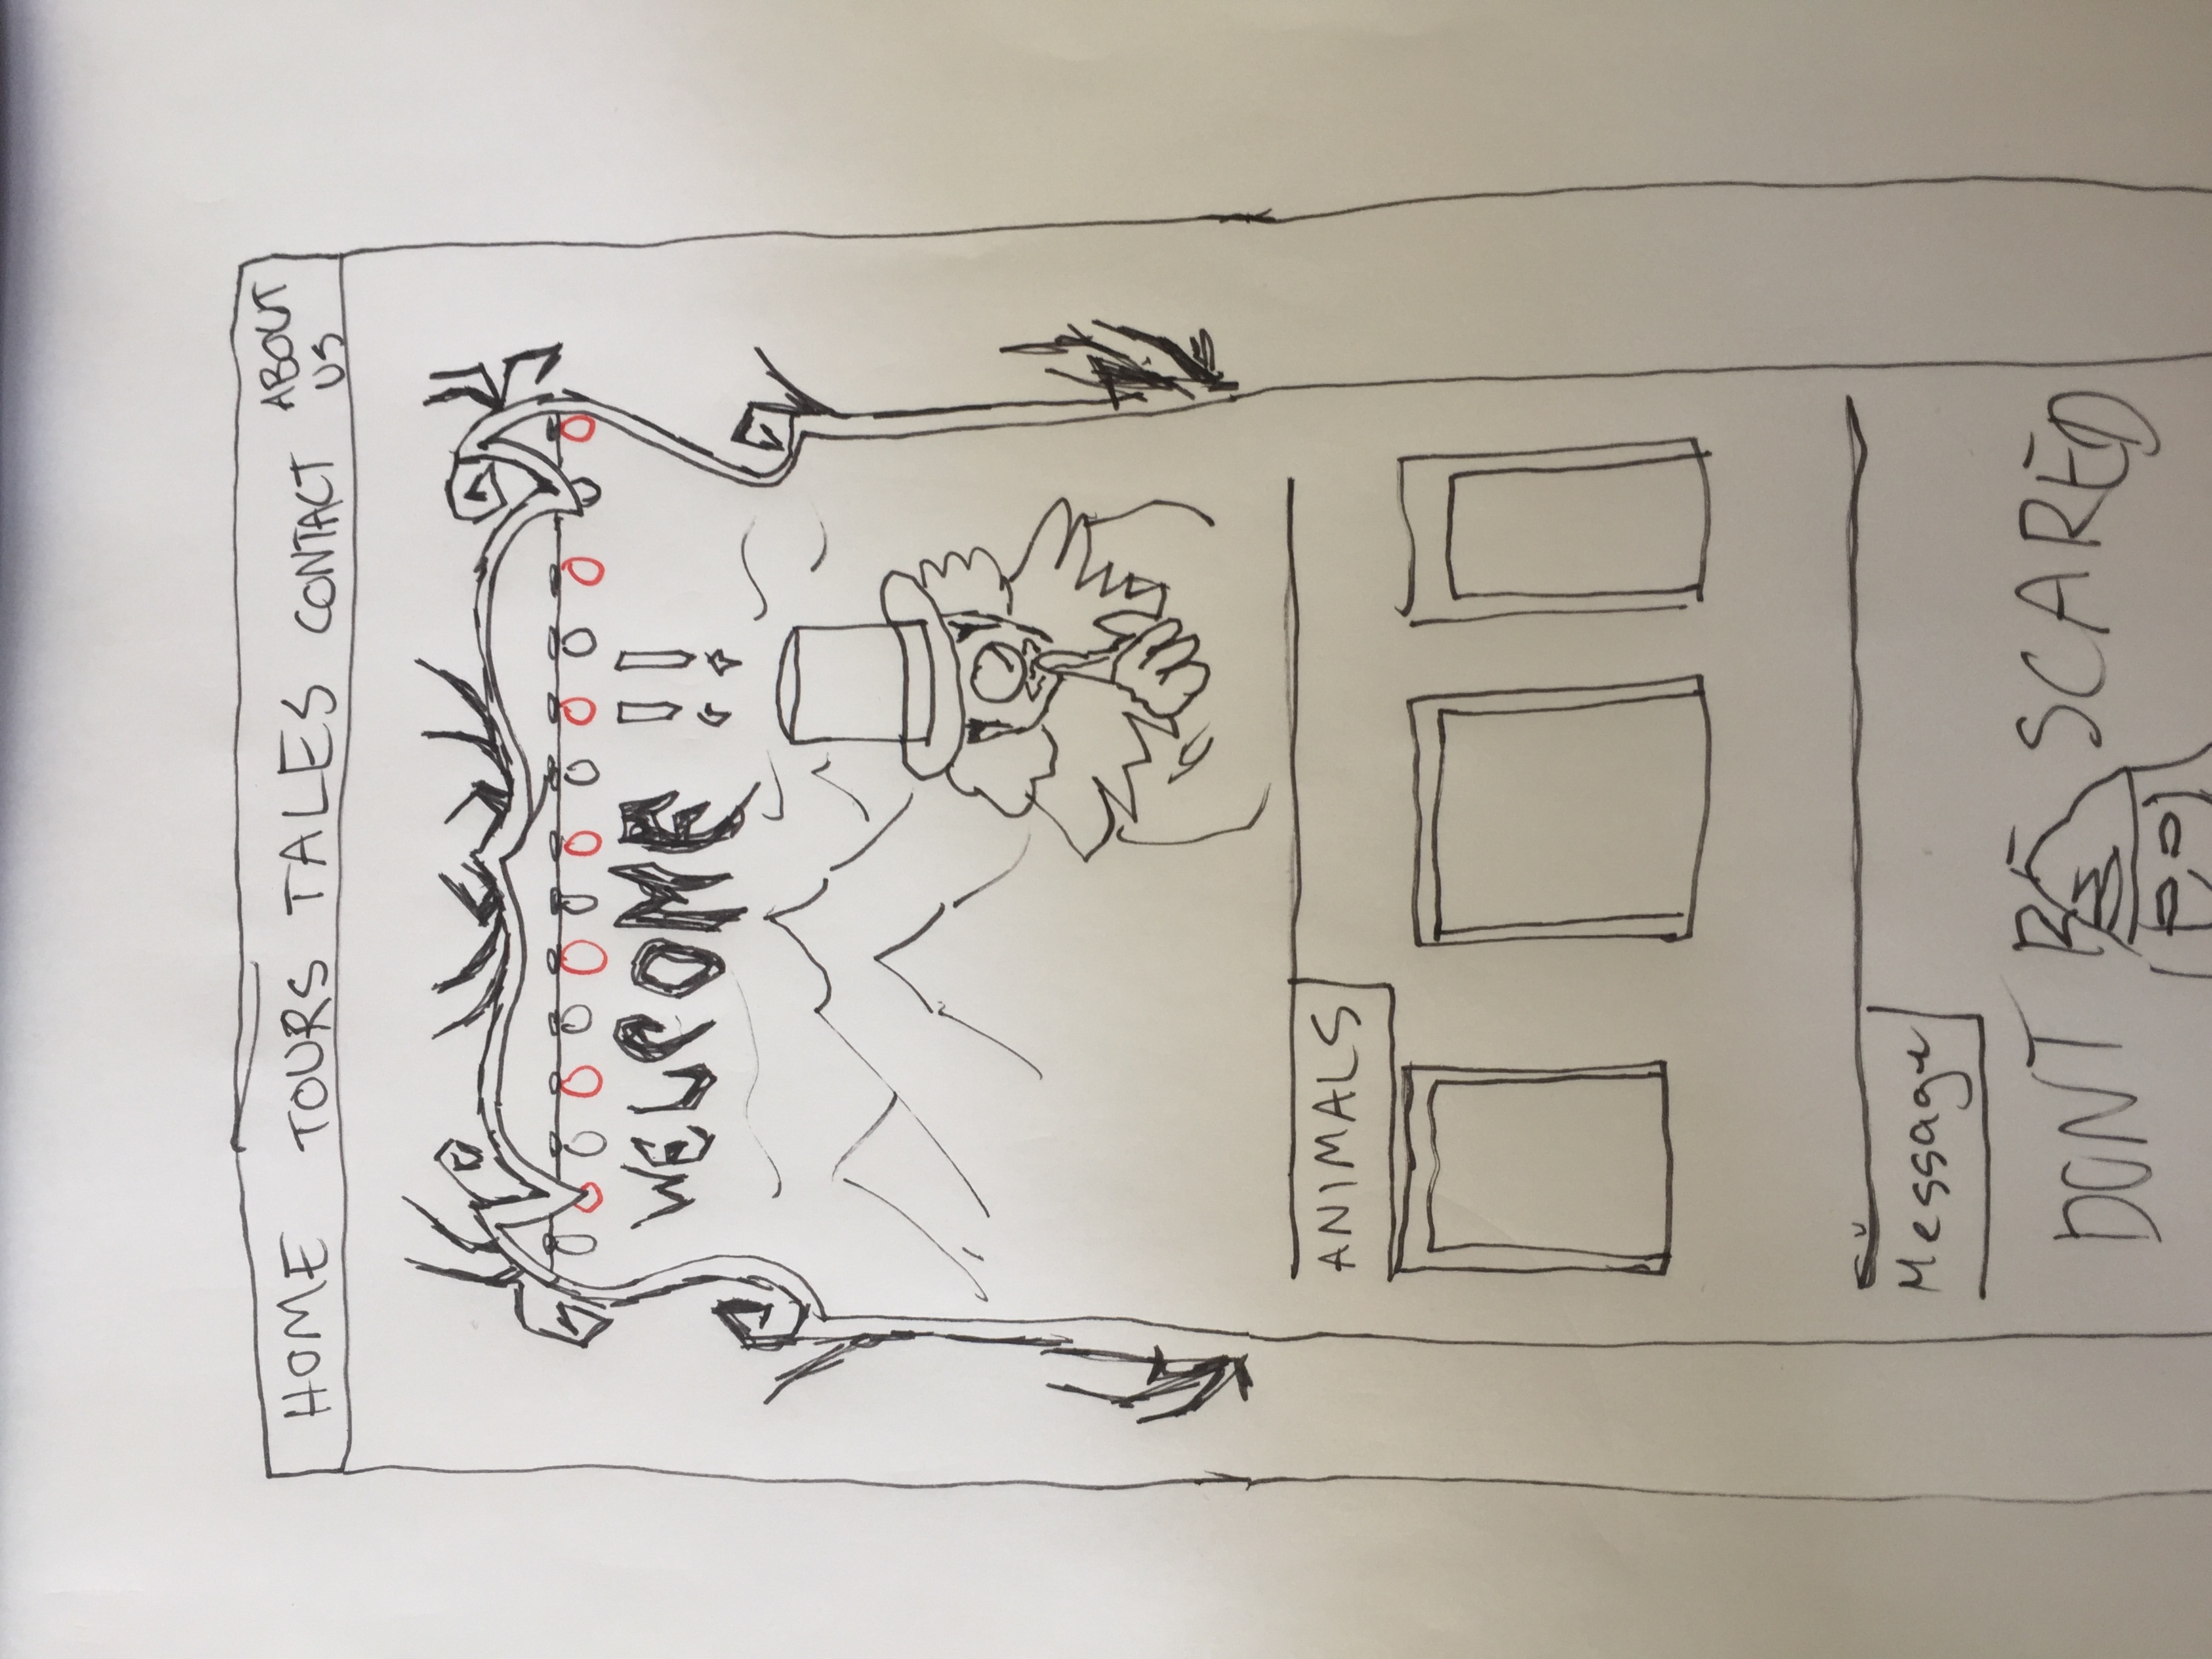 HOME TOURS TALES CONTACT ABOUT US
WELCOME !!
ANIMALS
Message
DONT BE SCARED